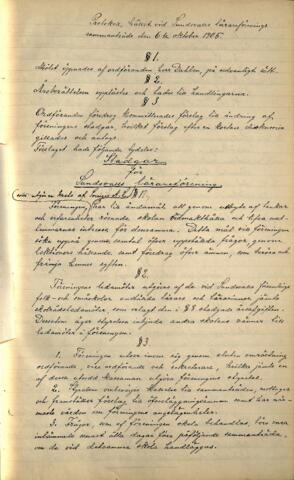 Protokoll, hållet vid Sundsvalls lärareförenings
sammanträde den 6te oktober 1905.
§ 1.
Mötet öppnades af ordföranden herr Dahlén, på sedvanligt sätt.
§ 2.
Årsberättelsen upplästes och lades till handlingarna.
§ 3
Ordföranden föredrog kommitterades förslag till ändring af
föreningens stadgar, hvilket förslag efter en kortare diskussion
gillades och antogs.
Förslaget hade följande lydelse:
Stadgar
för
Sundsvalls lärareförening
§ 1.
Föreningen har till ändamål att genom utbyte af tankar
och erfarenheter rörande skolan
intresse för densamma. Detta mål vill föreningen
söka uppnå genom samtal öfver uppställda frågor, genom
lektioners hållande samt föredrag öfver ämnen, som beröra och
främja hennes syften.
§ 2.
Föreningens ledamöter utgöras af de vid Sundsvalls församlings
folk- och småskolor anställda lärare och lärarinnor jämte
skolrådsledamöter, som erlagt den i § 8 stadgade årsafgiften.
Dessutom äger styrelsen inbjuda andra skolans vänner till
ledamöter i föreningen.
§ 3.
1. Föreningen utser inom sig genom sluten omröstning
ordförande, vice ordförande och sekreterare, hvilka jämte en
af dessa
föreningens styrelse.
2. Styrelsen
kallelse till sammanträden, mottager
och framställer förslag till öfverläggningsämnen samt har närmaste
vården om föreningens angelägenheter.
3. Frågor, som af föreningen skola behandlas, böra vara
inlämnade senast åtta dagar före påföljande sammanträde,
om de vid detsamma skola handläggas.